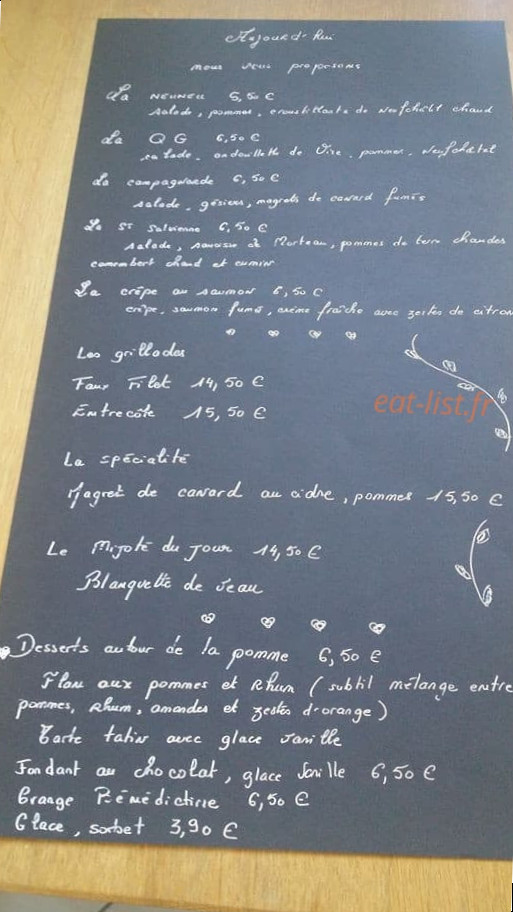 Aujourd'hui
nous vous proposons
La NEUNEU 6,50 €
salade, pommes, croustillants de Neufchâtel chaud
La QG 6,50 €
salade, andouillette de Vire, pommes, Neufchâtel
La campagnarde 6,50 €
salade, gésiers, magrets de canard fumés
La St Salvienne 6,50 €
salade, saucisse de Morteau, pommes de terre chaudes
camembert chaud et cumin
La crêpe au saumon 6,50 €
crêpe, saumon fumé, crème fraîche avec zestes de citron
Les grillades
Faux Filet 14,50 €
Entrecôte 15,50 €
eat-list.fr
La spécialité
Magret de canard au cidre, pommes 15,50 €
Le Mijoté du jour 14,50 €
Blanquette de veau
Desserts autour de la pomme 6,50 €
Flan aux pommes et Rhum (subtil mélange entre
pommes, Rhum, amandes et zestes d'orange)
Tarte tatin avec glace vanille
Fondant au chocolat, glace vanille 6,50 €
Orange Bénédictine 6,50 €
Glace, sorbet 3,90 €